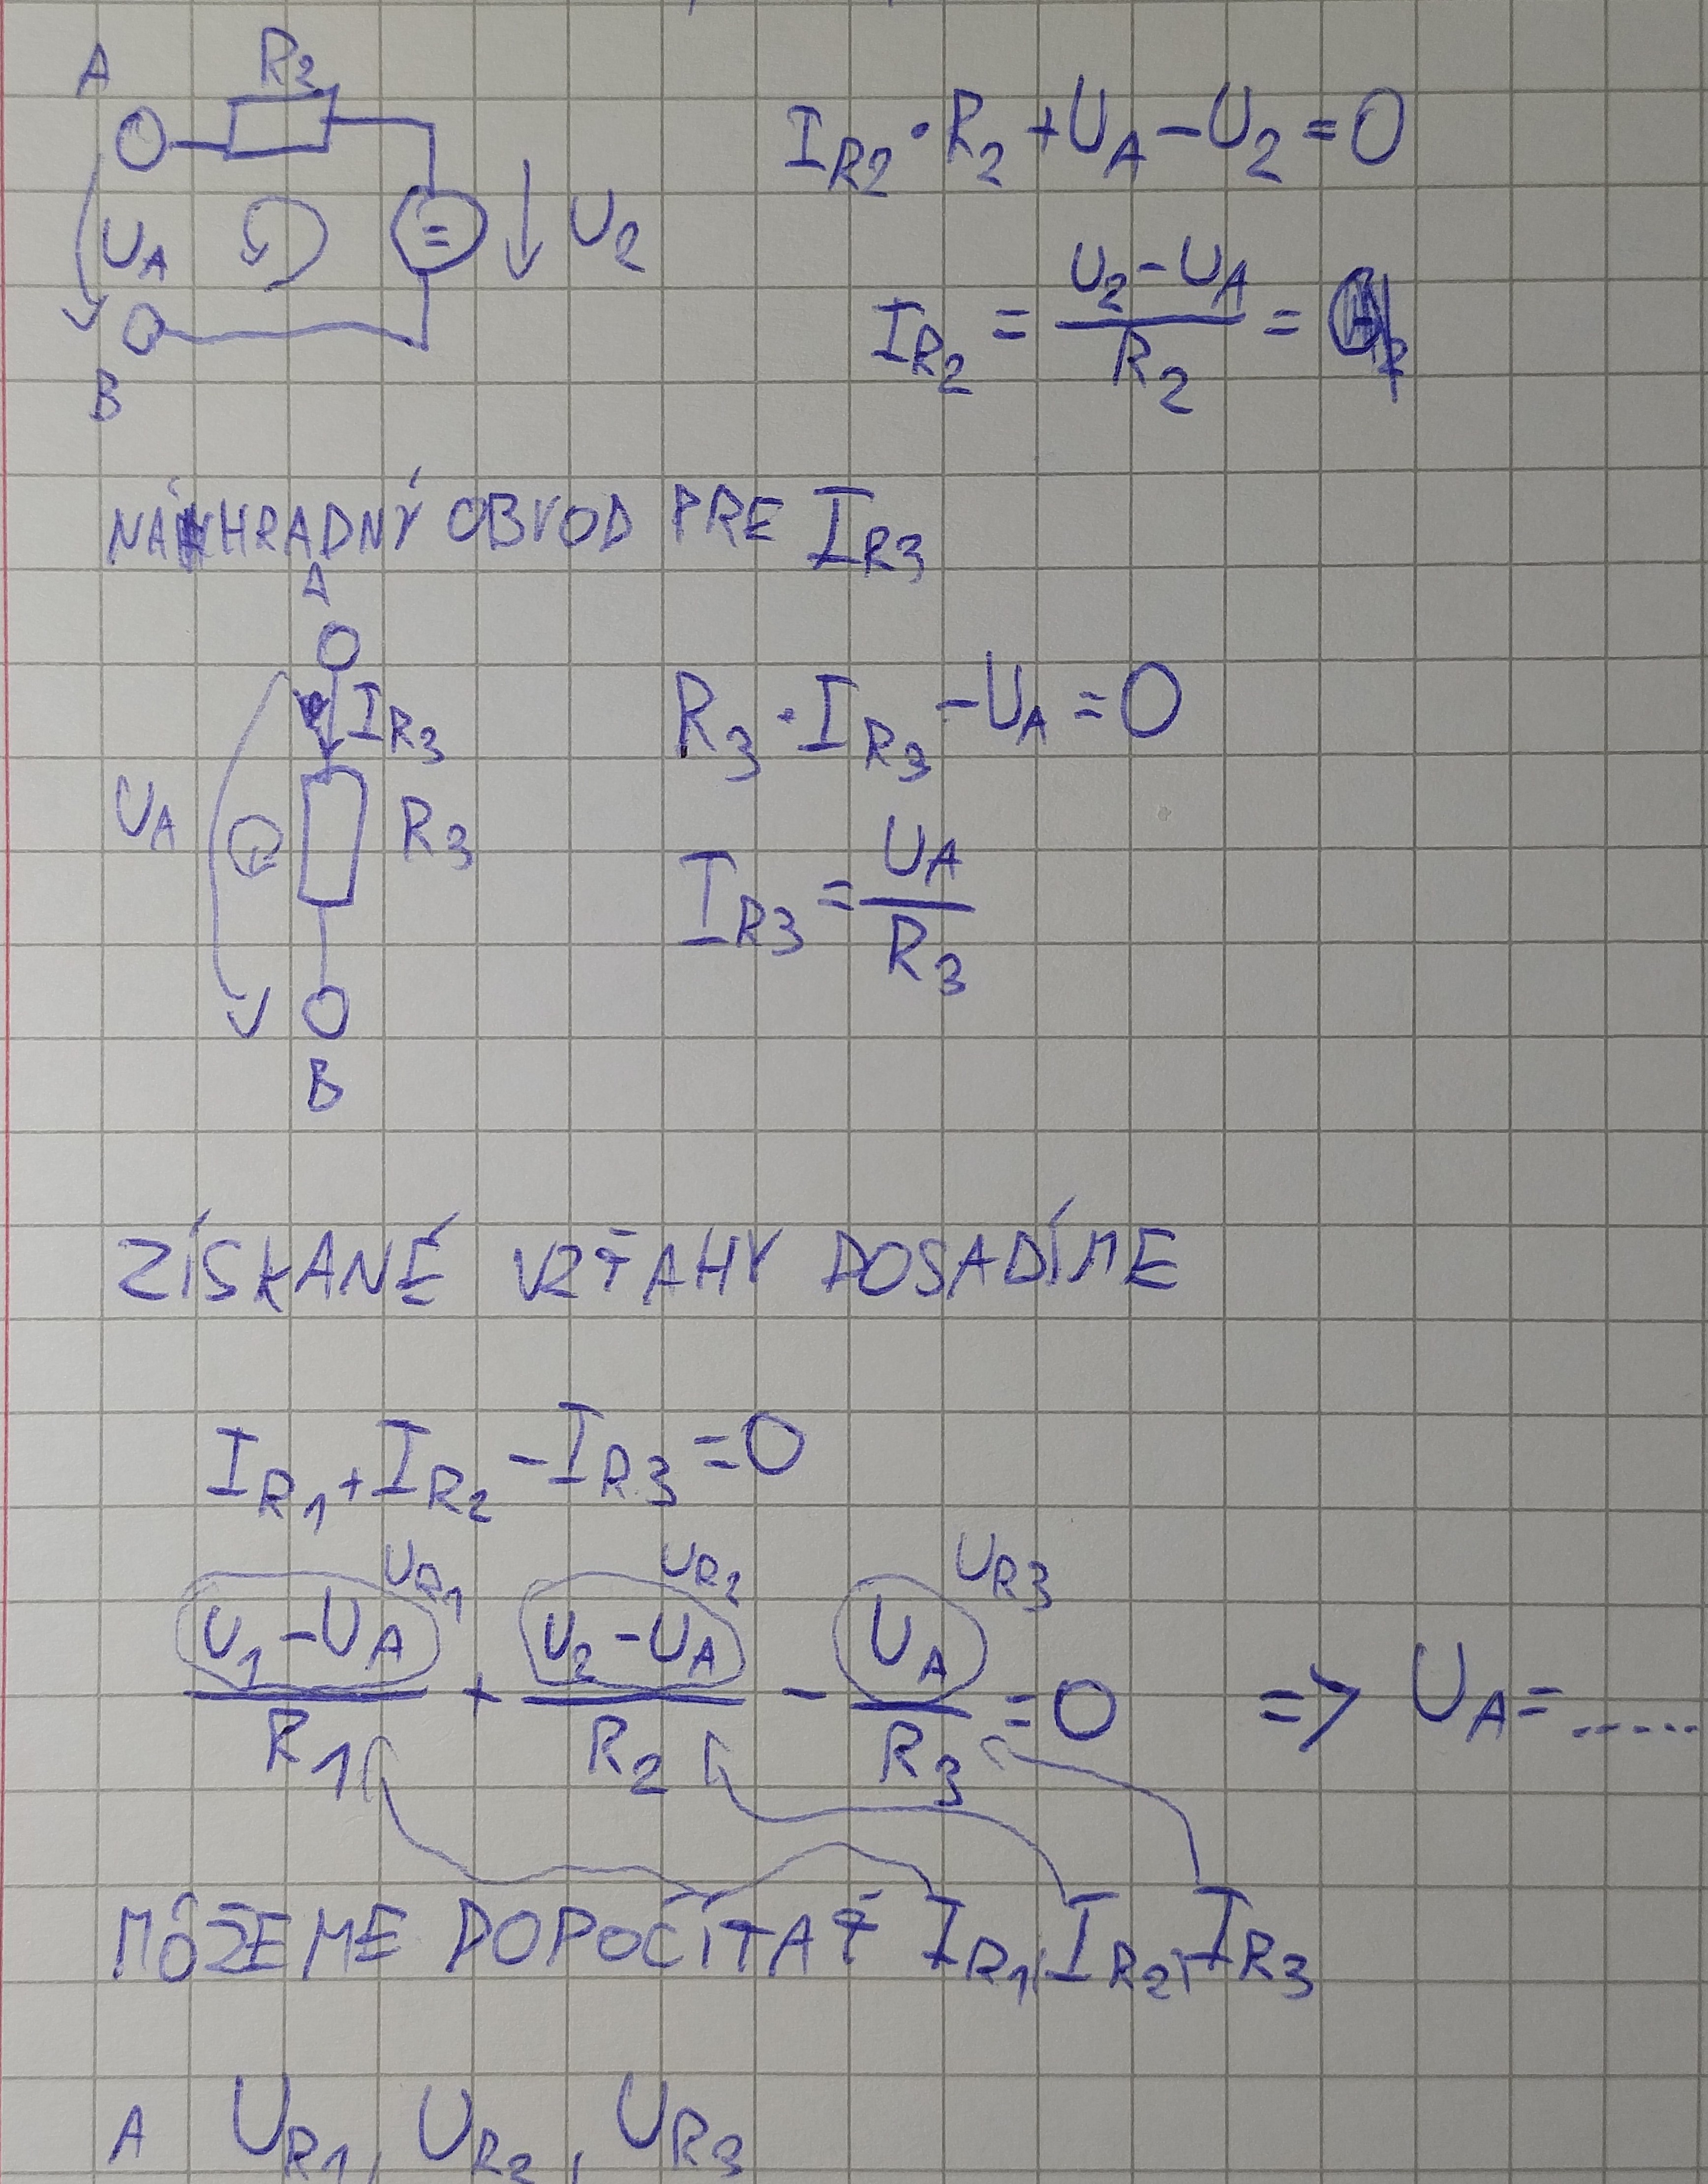 A R2
I_R2 · R2 + U_A - U_2 = 0
U_A = U_2
I_R2 = (U_2 - U_A) / R_2 =
B
NÁHRADNÝ OBVOD PRE I_R3
A
I_R3 R_3 · I_R3 - U_A = 0
U_A R_3
I_R3 = U_A / R_3
B
ZÍSKANÉ VZŤAHY DOSADÍME
I_R1 + I_R2 - I_R3 = 0
U_R1 U_R2 U_R3
(U_1 - U_A) / R_1 + (U_2 - U_A) / R_2 - U_A / R_3 = 0 => U_A = ......
MÔŽEME DOPOČÍTAŤ I_R1, I_R2, I_R3
A U_R1, U_R2, U_R3